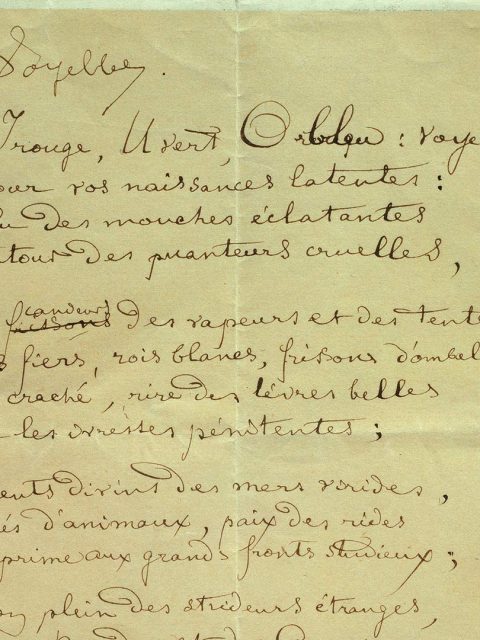 Voyelles.
I rouge, U vert, O bleu : voye
our vos naissances latentes :
lu des mouches éclatantes
utour des puanteurs cruelles,
candeurs
frissons des vapeurs et des tente
s fiers, rois blancs, frisons d'ombel
craché, rire des lèvres belles
les ivresses pénitentes ;
ents divins des mers virides,
és d'animaux, paix des rides
prime aux grands fronts studieux ;
plein des strideurs étranges,